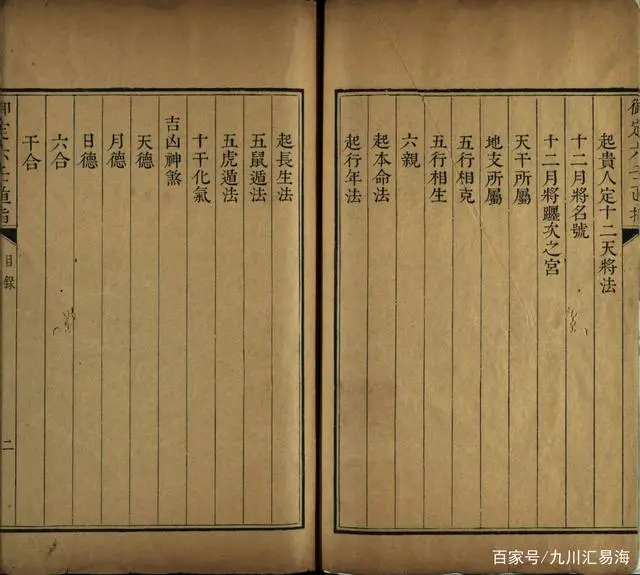 起貴人定十二天將法
十二月將名號
十二月將躔次之宮
天干所屬
地支所屬
五行相克
五行相生
六親
起本命法
起行年法
起長生法
五鼠遁法
五虎遁法
十干化氣
吉凶神煞
天德
月德
日德
六合
干合
目錄
二
百家号/九川汇易海